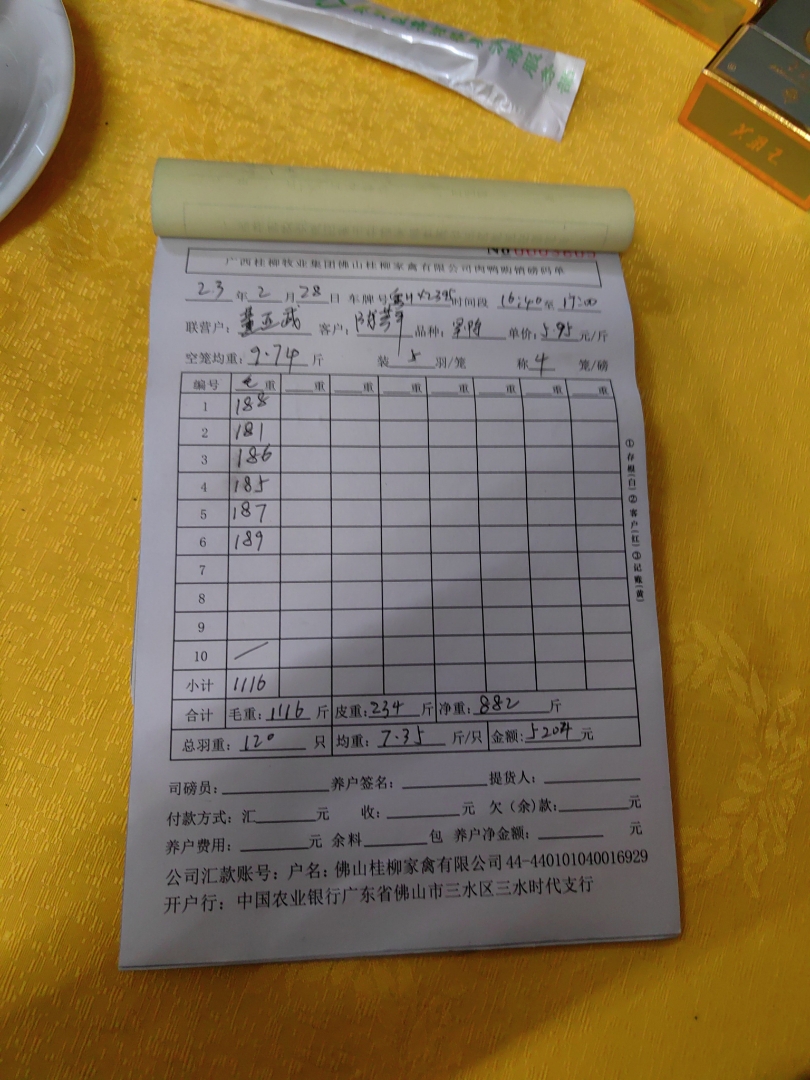 No 0003609
广西桂柳牧业集团佛山桂柳家禽有限公司肉鸭购销磅码单
23 年 2 月 28 日 车牌号 时间段 16:40 至 17:00
联营户: 客户: 品种: 单价: 5.95 元/斤
空笼均重: 9.74 斤 装 5 羽/笼 称 4 笼/磅
编号 毛重 重 重 重 重 重 重 重
1 188
2 181
3 186
4 185
5 187
6 189
7
8
9
10
小计 1116
合计 毛重: 1116 斤 皮重: 234 斤 净重: 882 斤
总羽重: 120 只 均重: 7.35 斤/只 金额: 5204 元
司磅员: 养户签名: 提货人:
付款方式: 汇 元 收: 元 欠(余)款: 元
养户费用: 元 余料 包 养户净金额: 元
公司汇款账号: 户名: 佛山桂柳家禽有限公司 44-440101040016929
开户行: 中国农业银行广东省佛山市三水区三水时代支行
①存根(白)②客户(红)③记账(黄)